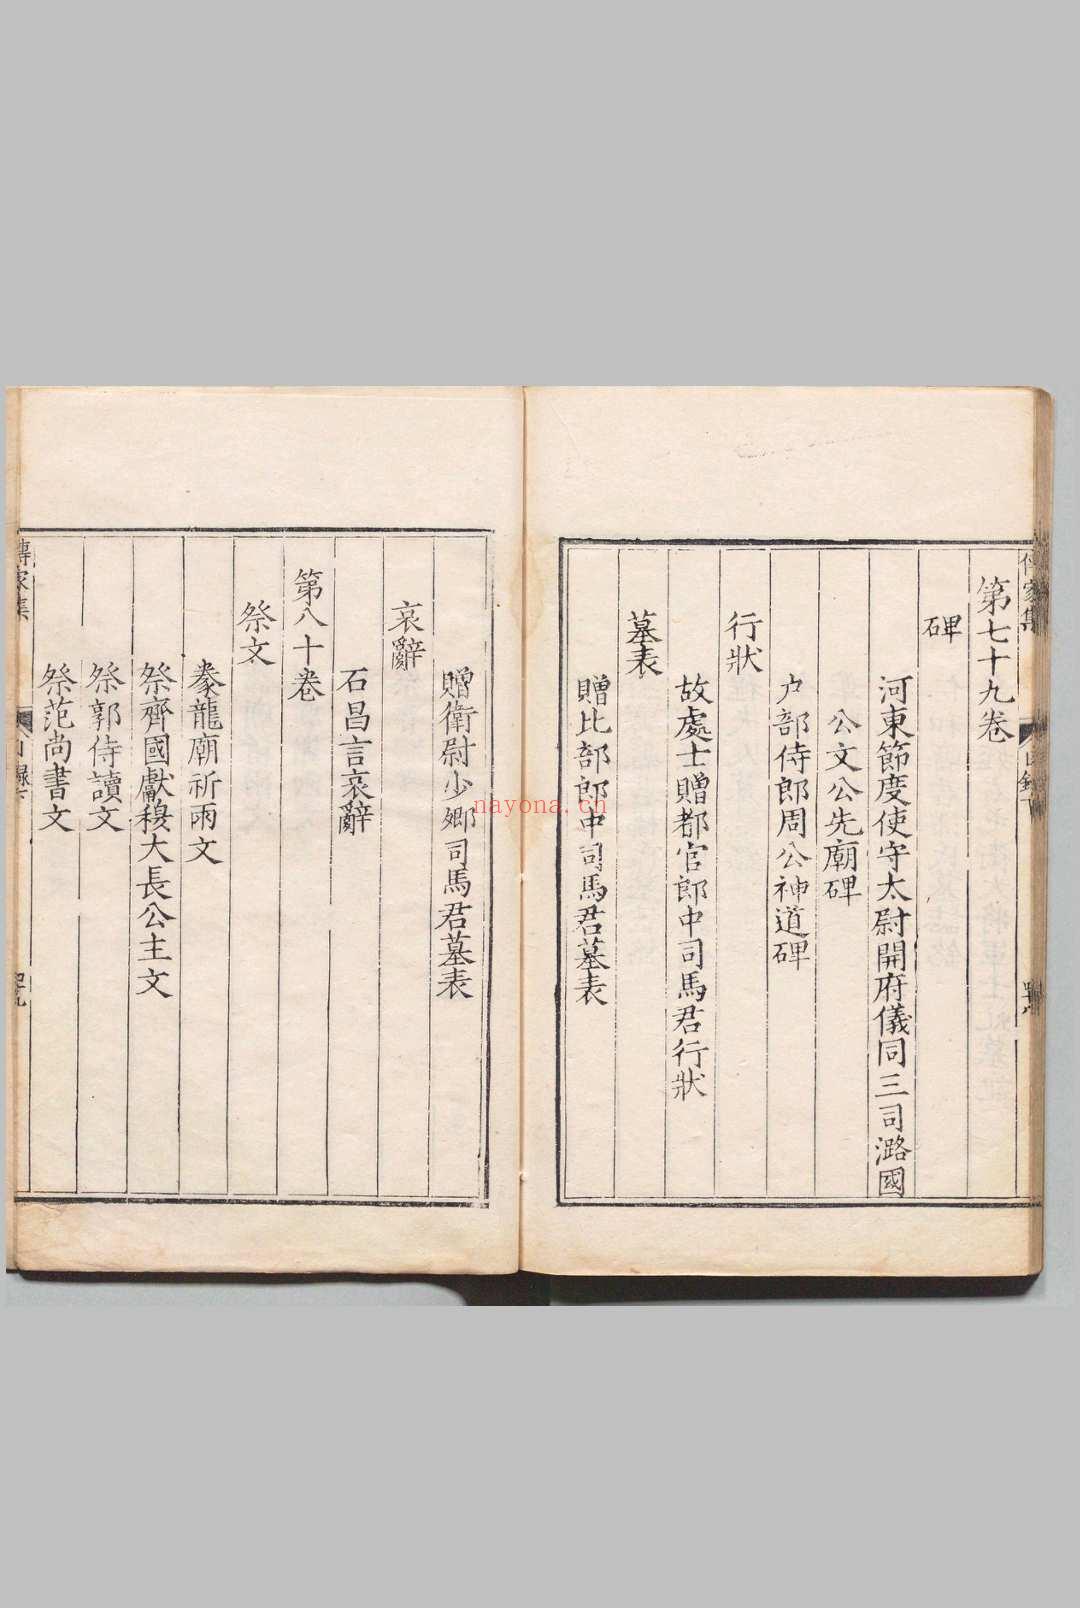 第七十九卷
碑
河東節度使守太尉開府儀同三司潞國
公文公先廟碑
户部侍郎周公神道碑
行狀
故處士贈都官郎中司馬君行狀
墓表
贈比部郎中司馬君墓表
贈衛尉少卿司馬君墓表
哀辭
石昌言哀辭
第八十卷
祭文
豢龍廟祈雨文
祭齊國獻穆大長公主文
祭郭侍讀文
祭范尚書文
傳家集
nayona.cn